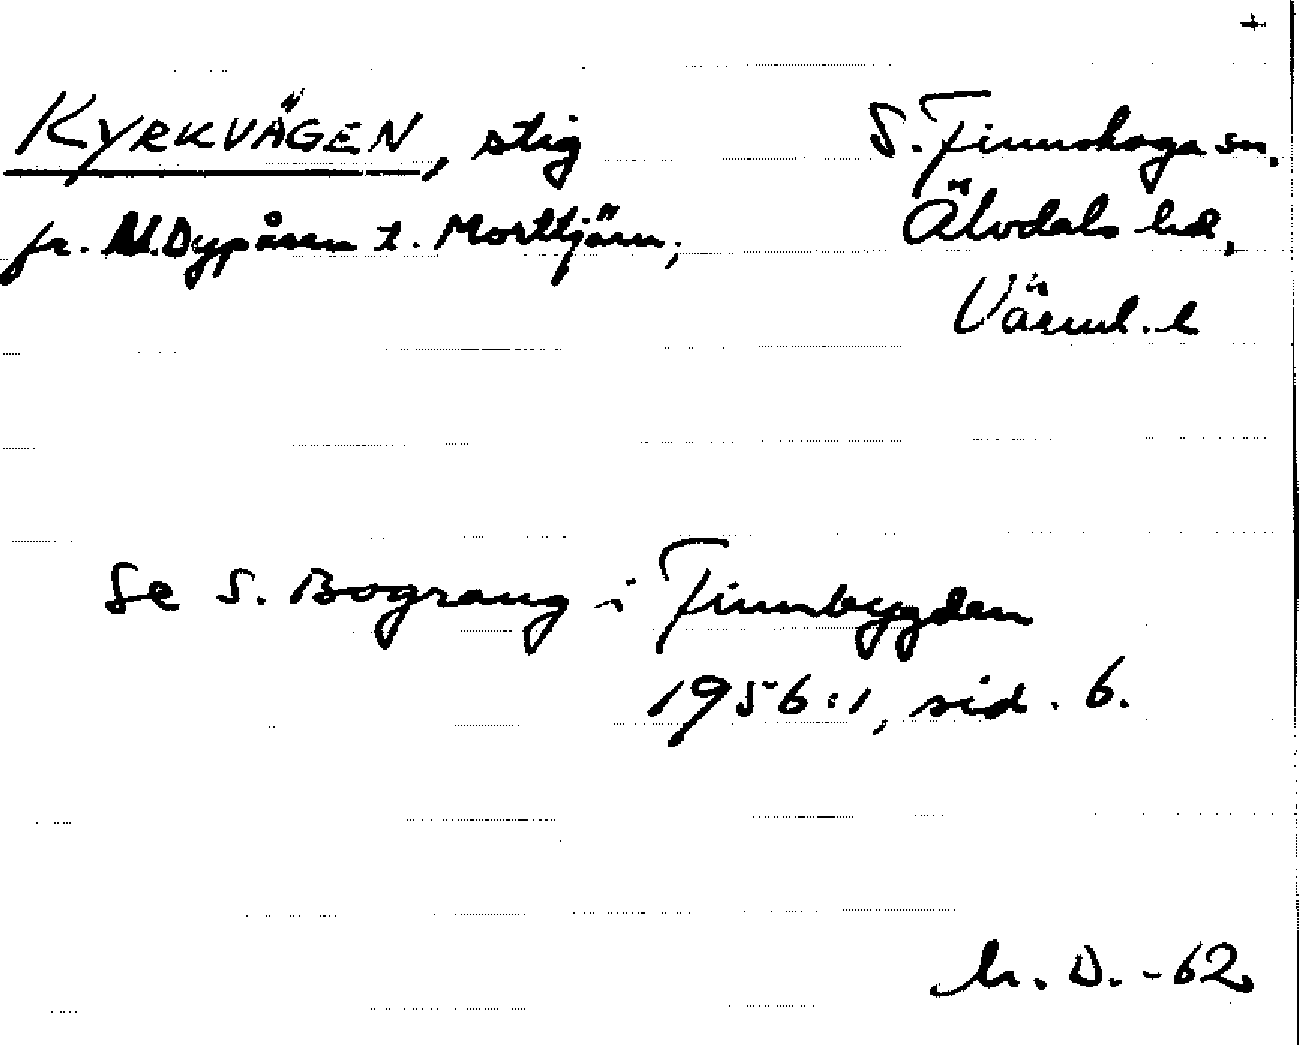 +
KYRKVÄGEN, stig
fr. N. Dypåsen t. Morttjärn,
S. Finnskoga sn.
Älvdals hd,
Värml. l
Se S. Bograng i Finnbygden
1956:1, sid. 6.
D. -62